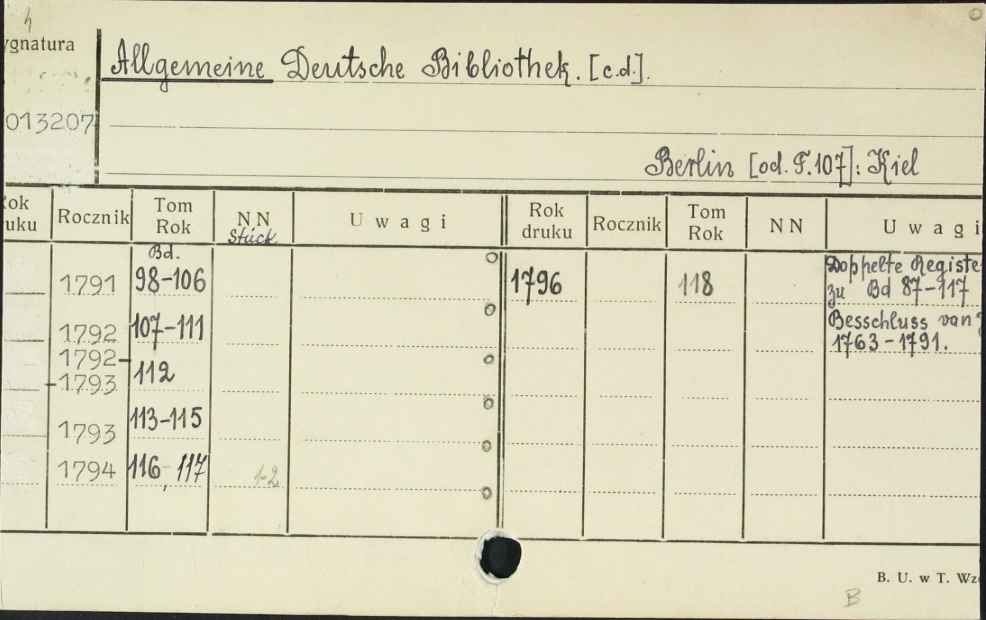 4
ygnatura
Allgemeine Deutsche Bibliothek. [c.d.].
013207
Berlin [od. T.107]: Kiel
Rok
uku
Rocznik
Tom
Rok
NN
Stück
Uwagi
Rok
druku
Rocznik
Tom
Rok
NN
Uwagi
Bd.
1791 98-106
1792 107-111
1792-
-1793 112
1793 113-115
1794 116, 117 1-2
1796 118 Doppelte Registe
zu Bd 87-117
Besschluss van
1763-1791.
B. U. w T. Wz
B